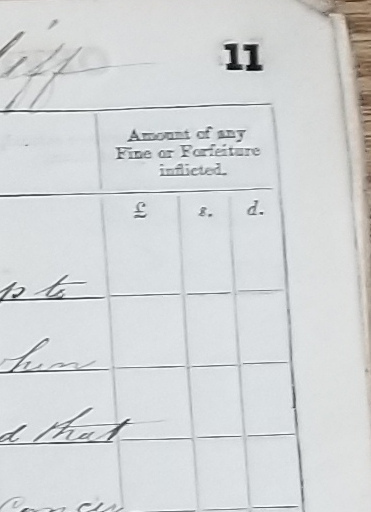 iff
11
Amount of any
Fine or Forfeiture
inflicted.
£ s. d.
p to
when
d that